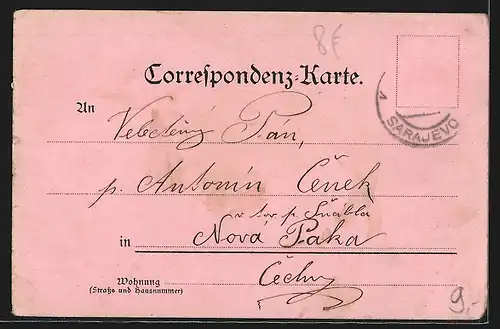 8€
Correspondenz-Karte.
An
Velectěný Pán,
SARAJEVO
p. Antonín Čeněk
p.
in Nová Paka
Wohnung Čechy
(Straße und Hausnummer)
9.-